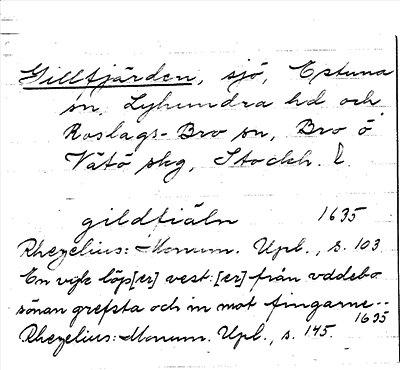 Gillfjärden, sjö, Estuna
sn, Lyhundra hd och
Roslags-Bro sn, Bro o.
Vätö skg, Stockh. l.
gildfiäln 1635
Rhezelius: Monum. Upl., s. 103
En vyk löp[er] vest[er] från vddebo
sönan grefsta och in mot fingarne..
Rhezelius: Monum. Upl., s. 145. 1635